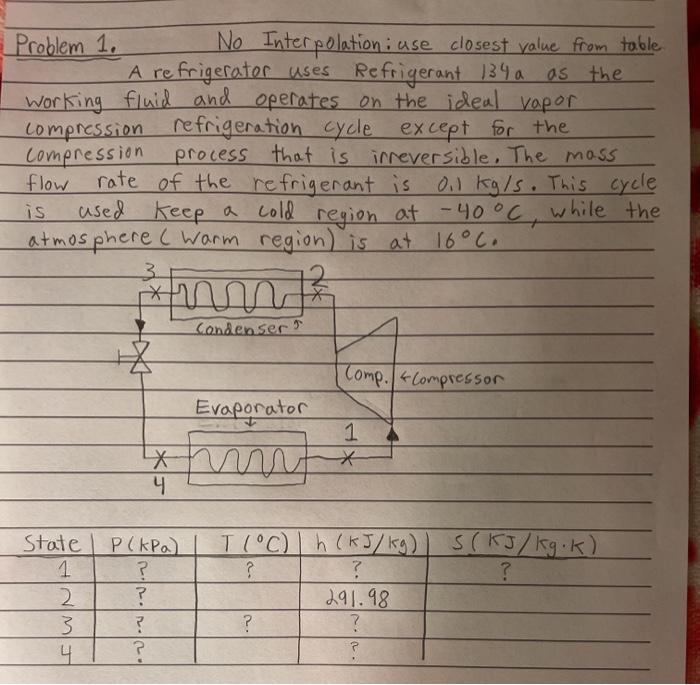 Problem 1. No Interpolation: use closest value from table.
A refrigerator uses Refrigerant 134a as the
working fluid and operates on the ideal vapor
compression refrigeration cycle except for the
compression process that is irreversible. The mass
flow rate of the refrigerant is 0.1 kg/s. This cycle
is used keep a cold region at -40 °C, while the
atmosphere (warm region) is at 16°C.
3 2
Condenser
Comp. Compressor
Evaporator
1
4
State P(kPa) T (°C) h (kJ/kg) S (KJ/kg·K)
1 ? ? ? ?
2 ? 291.98
3 ? ? ?
4 ? ?